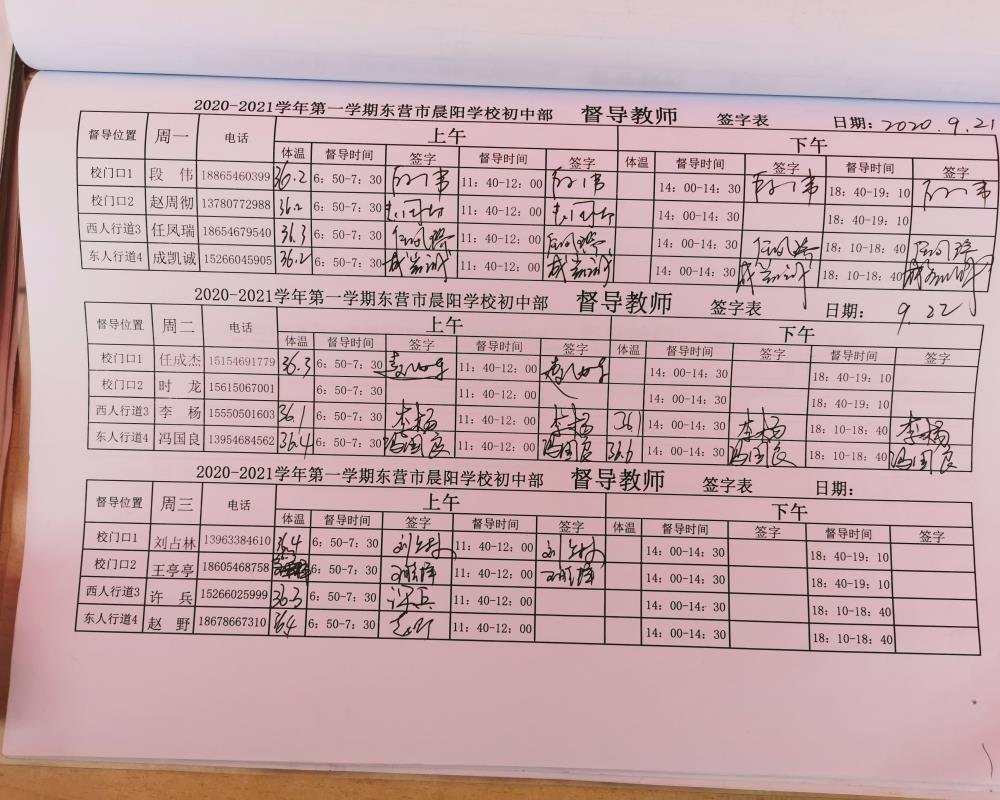 2020-2021学年第一学期东营市晨阳学校初中部 督导教师 签字表 日期: 2020.9.21
督导位置 周一 电话 上午 下午
体温 督导时间 签字 督导时间 签字 体温 督导时间 签字 督导时间 签字
校门口1 段 伟 18865460399 36.2 6: 50-7: 30 段伟 11: 40-12: 00 段伟 14: 00-14: 30 段伟 18: 40-19: 10 段伟
校门口2 赵周彻 13780772988 36.2 6: 50-7: 30 赵周彻 11: 40-12: 00 赵周彻 14: 00-14: 30 18: 40-19: 10
西人行道3 任凤瑞 18654679540 36.3 6: 50-7: 30 任凤瑞 11: 40-12: 00 任凤瑞 14: 00-14: 30 任凤瑞 18: 10-18: 40 任凤瑞
东人行道4 成凯诚 15266045905 36.2 6: 50-7: 30 成凯诚 11: 40-12: 00 成凯诚 14: 00-14: 30 成凯诚 18: 10-18: 40 成凯诚
2020-2021学年第一学期东营市晨阳学校初中部 督导教师 签字表 日期: 9.22
督导位置 周二 电话 上午 下午
体温 督导时间 签字 督导时间 签字 体温 督导时间 签字 督导时间 签字
校门口1 任成杰 15154691779 36.3 6: 50-7: 30 11: 40-12: 00 14: 00-14: 30 18: 40-19: 10
校门口2 时 龙 15615067001 6: 50-7: 30 11: 40-12: 00 14: 00-14: 30 18: 40-19: 10
西人行道3 李 杨 15550501603 36.1 6: 50-7: 30 李杨 11: 40-12: 00 李杨 36.1 14: 00-14: 30 李杨 18: 10-18: 40 李杨
东人行道4 冯国良 13954684562 36.4 6: 50-7: 30 冯国良 11: 40-12: 00 冯国良 36.6 14: 00-14: 30 冯国良 18: 10-18: 40 冯国良
2020-2021学年第一学期东营市晨阳学校初中部 督导教师 签字表 日期:
督导位置 周三 电话 上午 下午
体温 督导时间 签字 督导时间 签字 体温 督导时间 签字 督导时间 签字
校门口1 刘占林 13963384610 36.4 6: 50-7: 30 刘占林 11: 40-12: 00 刘占林 14: 00-14: 30 18: 40-19: 10
校门口2 王亭亭 18605468758 6: 50-7: 30 11: 40-12: 00 14: 00-14: 30 18: 40-19: 10
西人行道3 许 兵 15266025999 36.3 6: 50-7: 30 许兵 11: 40-12: 00 14: 00-14: 30 18: 10-18: 40
东人行道4 赵 野 18678667310 36.4 6: 50-7: 30 赵野 11: 40-12: 00 14: 00-14: 30 18: 10-18: 40